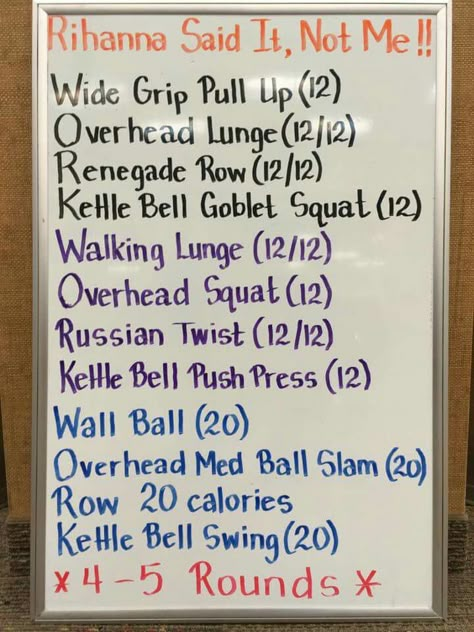 Rihanna Said It, Not Me!!
Wide Grip Pull Up (12)
Overhead Lunge (12/12)
Renegade Row (12/12)
Kettle Bell Goblet Squat (12)
Walking Lunge (12/12)
Overhead Squat (12)
Russian Twist (12/12)
Kettle Bell Push Press (12)
Wall Ball (20)
Overhead Med Ball Slam (20)
Row 20 calories
Kettle Bell Swing (20)
* 4-5 Rounds *